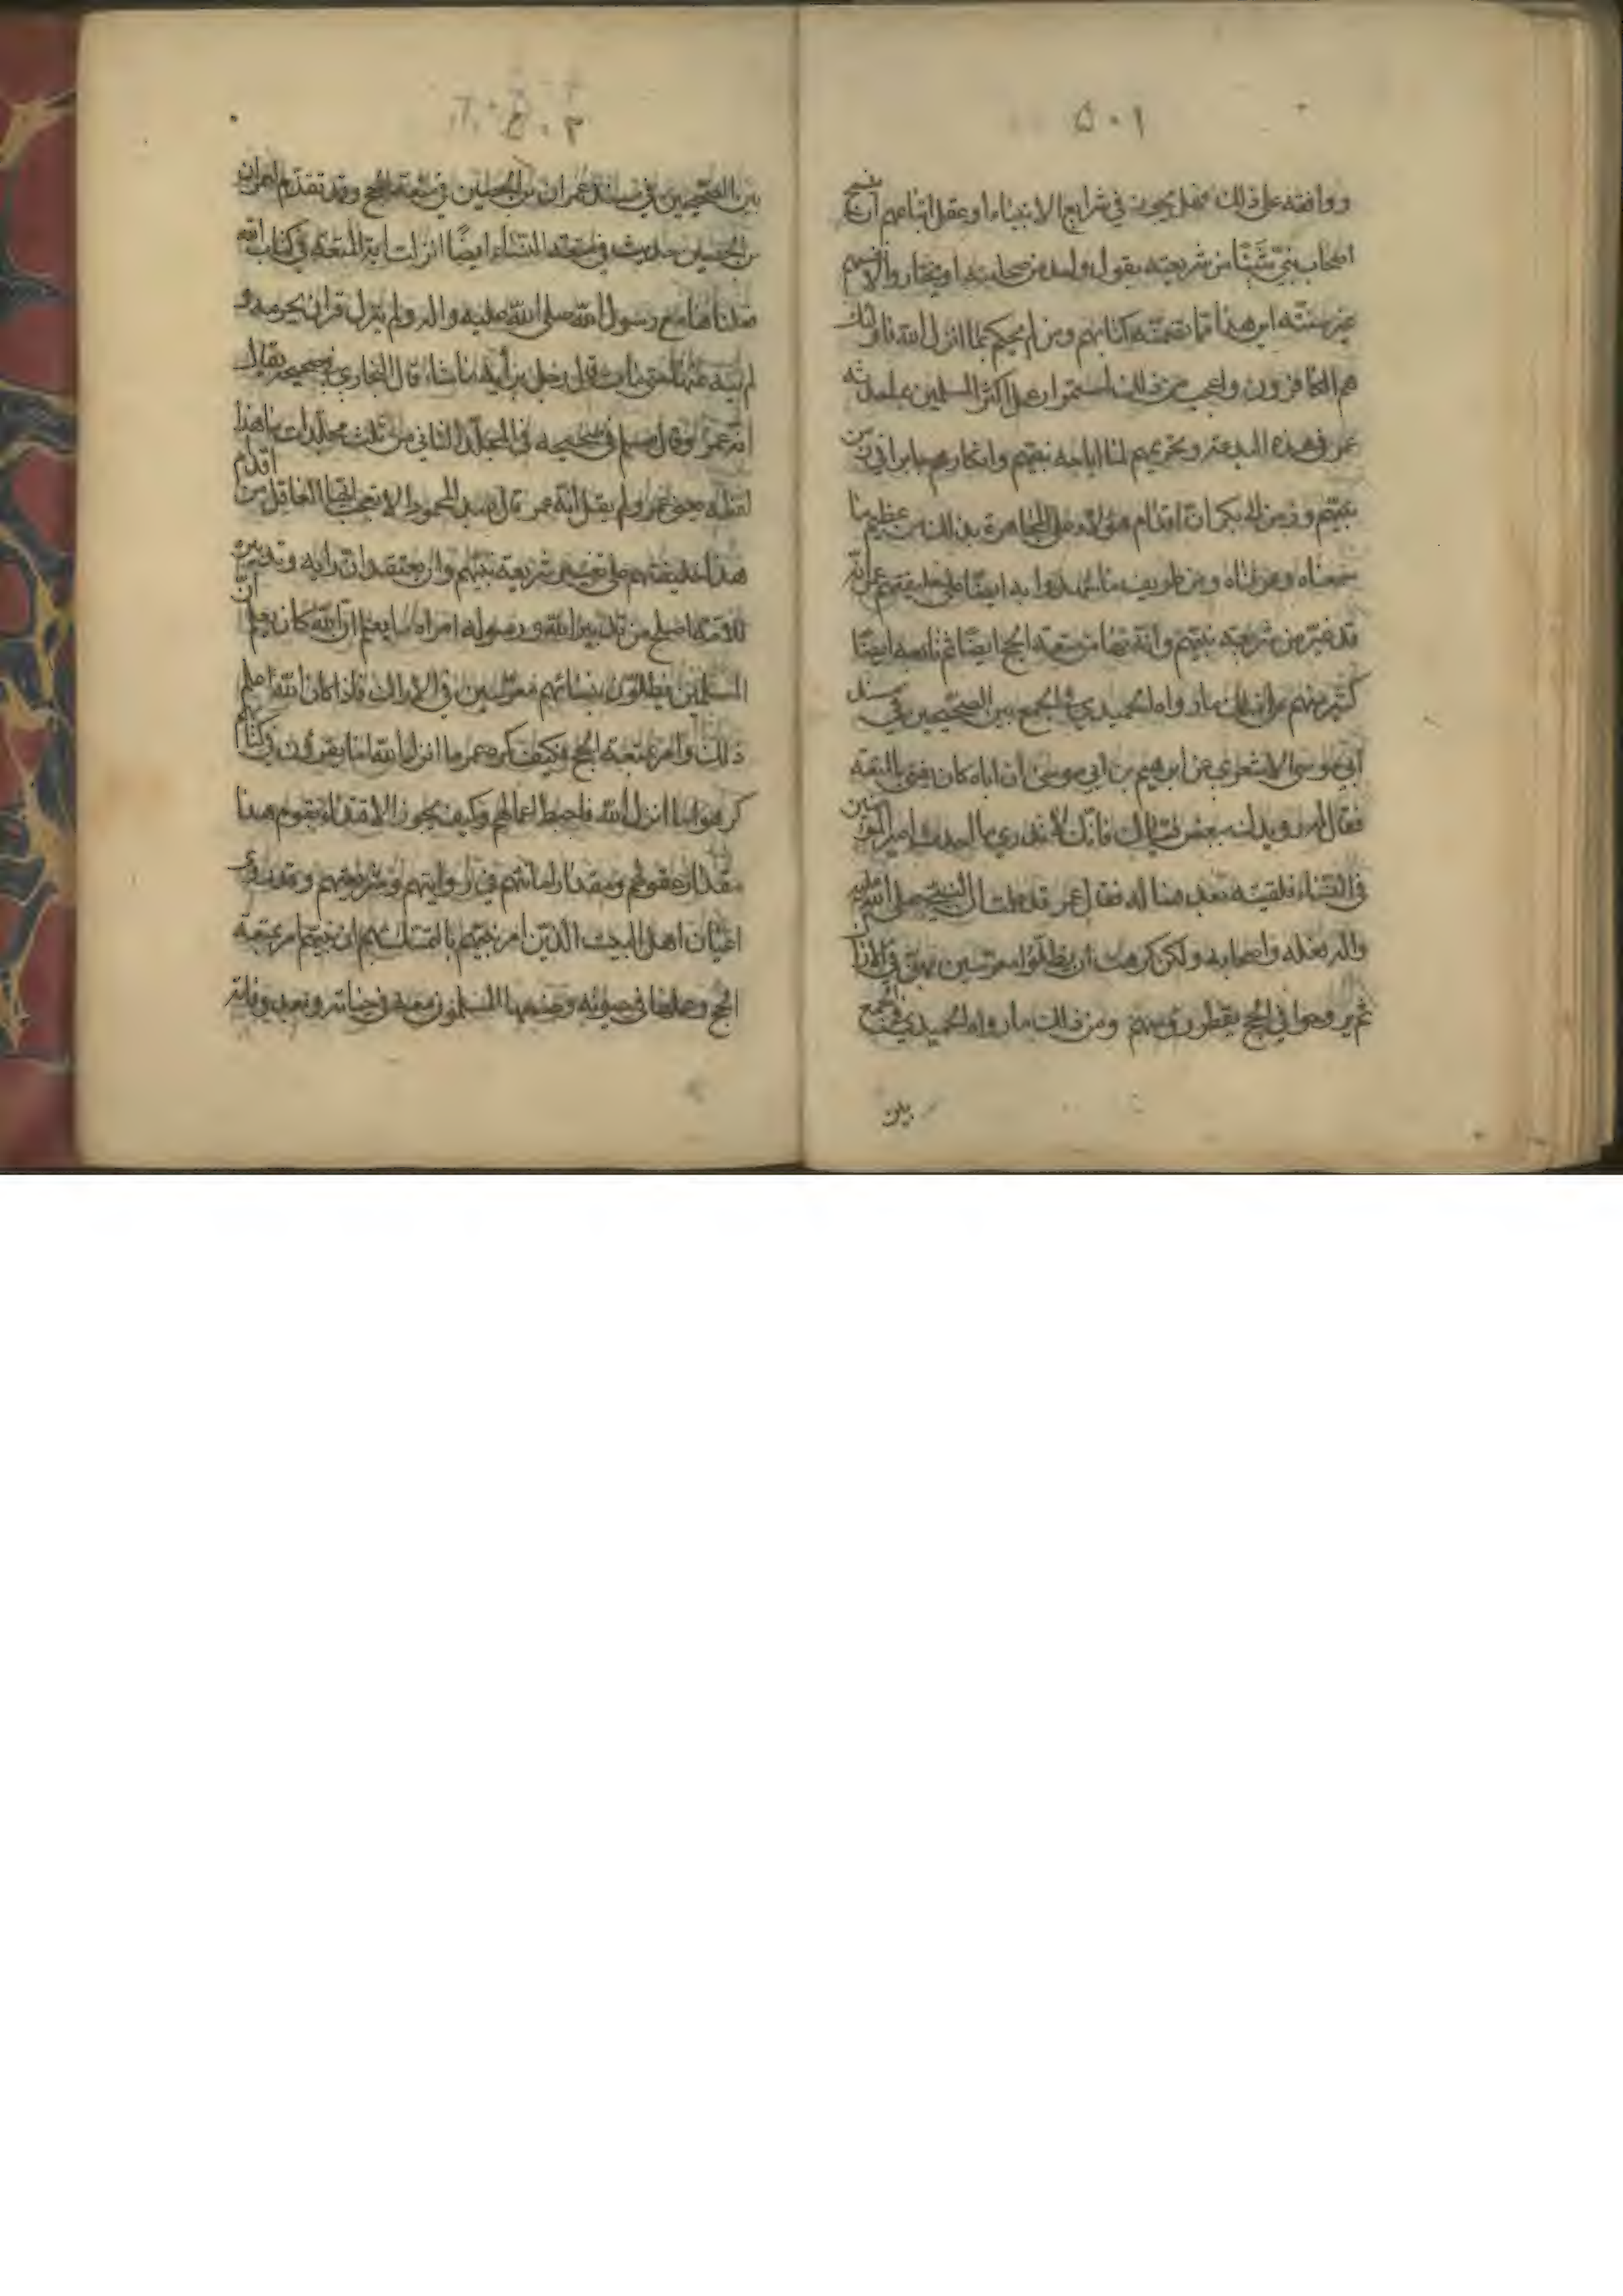 ٥٠١
ووافقه على ذلك فهل يجوز في شرايع الانبياء او عقل اتباعهم ان ينسخ
اصحاب نبي شيئا من شريعته بقول واحد من صحابته او يختاروا لانفسهم
غير سنته اين هذا مما تضمنه كتابهم ومن لم يحكم بما انزل الله فاولئك
هم الكافرون واعجب من ذلك استمرار اكثر المسلمين على بدعة
عمر في هذه البدعة وتحريمهم لما اباحه نبيهم وانكارهم جابرا في زمن
نبيهم وزمن ابي بكر ان اقدام هؤلاء على المجاهرة بذلك من عظيم ما
سمعناه وعرفناه ومن طريف ما شهدوا به ايضا على خليفتهم عمر انه
قد غير من شريعة نبيهم وانه نهى عن متعة الحج ايضا ثم تابعه ايضا
كثير منهم على ذلك ما رواه الحميدي في الجمع بين الصحيحين في مسند
ابي موسى الاشعري عن ابرهيم بن ابي موسى ان اباه كان يفتي بالمتعة
فقال له رويدك ببعض فتياك فانك لا تدري ما احدث امير المؤمنين
في النساء فلقيته بعد فساله فقال عمر قد علمت ان النبي صلى الله عليه
واله فعله واصحابه ولكن كرهت ان يظلوا معرسين بهن في الاراك
ثم يروحوا في الحج يقطر رؤسهم ومن ذلك ما رواه الحميدي في الجمع
بين
٥٠٢
بين الصحيحين في مسند عمران بن الحصين في متعة الحج وقد تقدم لعمران
بن الحصين حديث في متعة النساء ايضا انزلت اية المتعة في كتاب الله
ففعلناها مع رسول الله صلى الله عليه واله ولم ينزل قران يحرمه و
لم ينه عنها حتى مات قال رجل برأيه ما شاء قال البخاري في صحيحه يقال
انه عمر وقال مسلم في صحيحه في المجلد الثاني من ثلث مجلدات ما هذا
لفظه يعني عمر ولم يقل انه عمر قال عبد المحمود الا تعجب ايها العاقل من اقدام
هذا خليفتهم على تغيير شريعة نبيهم وان يعتقد ان رايه وتدبيره
للامة اصلح من تدبير الله ورسوله اتراه ما يعلم ان الله كان يعلم ان
المسلمين يظلون بنسائهم معرسين في الاراك فاذا كان الله اعلم
ذلك وامر بمتعة الحج فكيف كره عمر ما انزل الله اما يقرؤن في كتابهم
كرهوا ما انزل الله فاحبط اعمالهم وكيف يجوز الاقتداء بقوم هذا
مقدار عقولهم ومقدار امانتهم في روايتهم وشريعتهم وقد روى
اعيان اهل البيت الذين امر نبيهم بالتمسك بهم ان نبيهم امر بمتعة
الحج وعملها في حيوته وعملها المسلمون معه في حياته وبعد وفاته